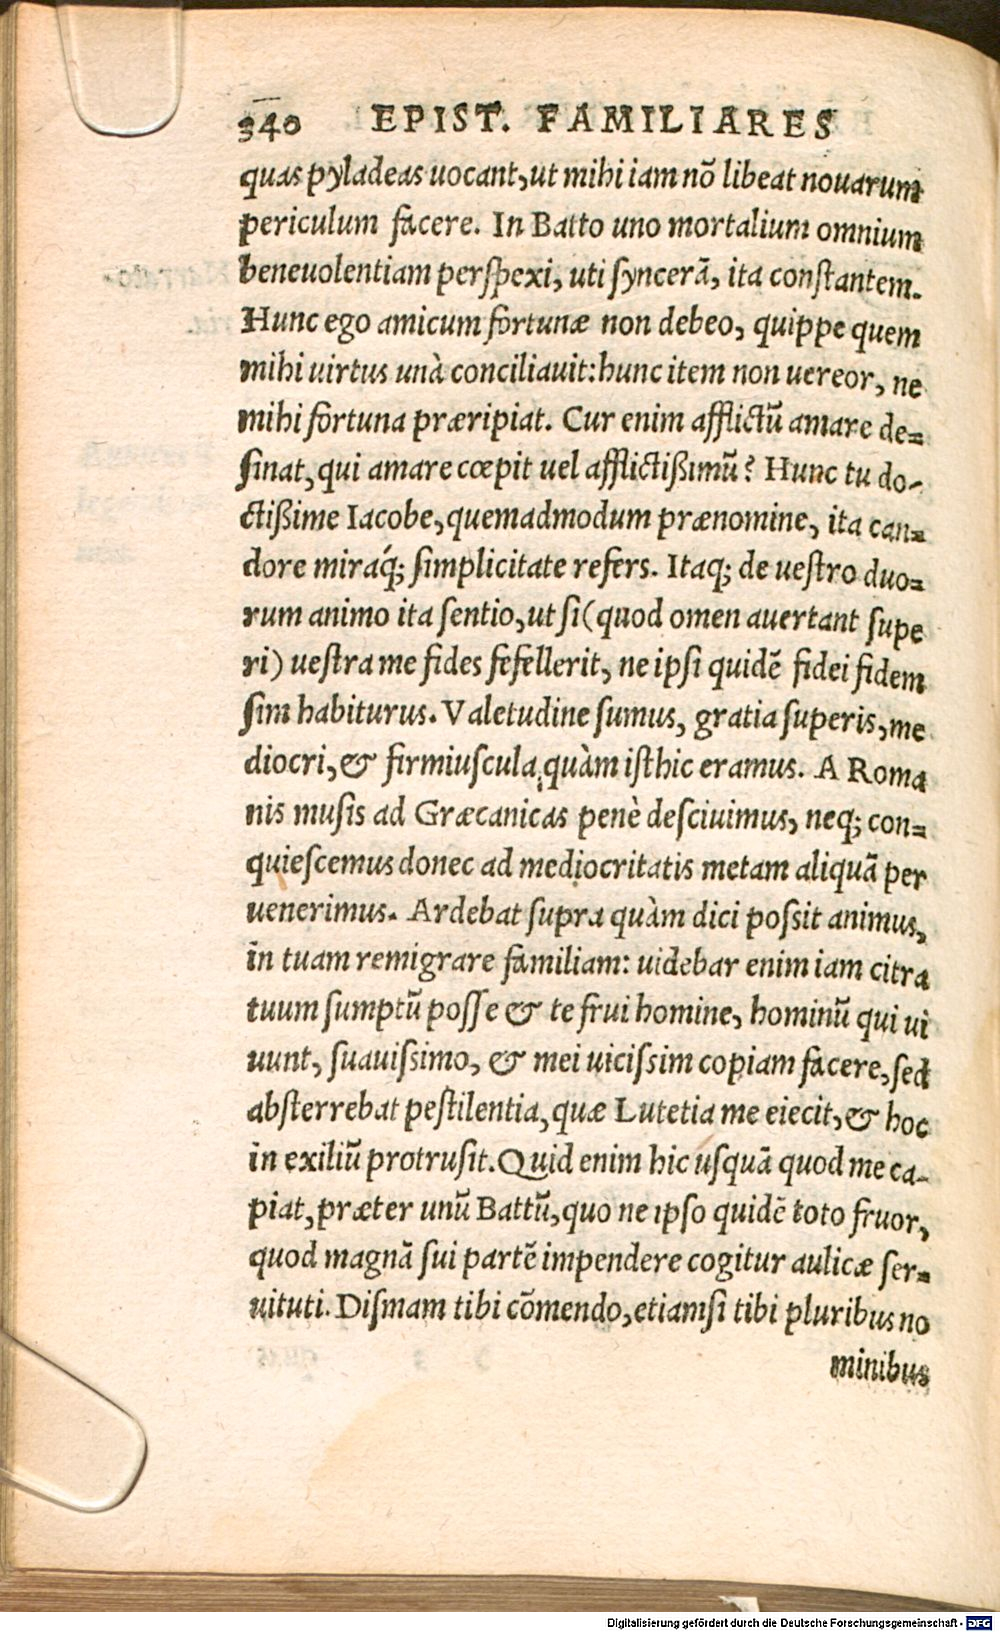 340 EPIST. FAMILIARES
quas pyladeas uocant, ut mihi iam nõ libeat nouarum
periculum facere. In Batto uno mortalium omnium
beneuolentiam perſpexi, uti ſyncerã, ita conſtantem.
Hunc ego amicum fortunæ non debeo, quippe quem
mihi uirtus unà conciliauit: hunc item non uereor, ne
mihi fortuna præripiat. Cur enim afflictũ amare de=
ſinat, qui amare cœpit uel afflictißimũ? Hunc tu do-
ctißime Iacobe, quemadmodum prænomine, ita can=
dore miraq́; ſimplicitate refers. Itaq; de ueſtro duo=
rum animo ita ſentio, ut ſi (quod omen auertant ſupe
ri) ueſtra me fides fefellerit, ne ipſi quidẽ fidei fidem
ſim habiturus. Valetudine ſumus, gratia ſuperis, me
diocri, & firmiuſcula, quàm iſthic eramus. A Roma
nis muſis ad Græcanicas penè deſciuimus, neq; con=
quieſcemus donec ad mediocritatis metam aliquã per
uenerimus. Ardebat ſupra quàm dici poſsit animus,
in tuam remigrare familiam: uidebar enim iam citra
tuum ſumptũ poſſe & te frui homine, hominũ qui ui
uunt, ſuauiſsimo, & mei uiciſsim copiam facere, ſed
abſterrebat peſtilentia, quæ Lutetia me eiecit, & hoc
in exiliũ protruſit. Quid enim hic uſquã quod me ca-
piat, præter unũ Battũ, quo ne ipſo quidẽ toto fruor,
quod magnã ſui partẽ impendere cogitur aulicæ ſer=
uituti. Diſmam tibi cõmendo, etiamſi tibi pluribus no
minibus
Digitalisierung gefördert durch die Deutsche Forschungsgemeinschaft - DFG